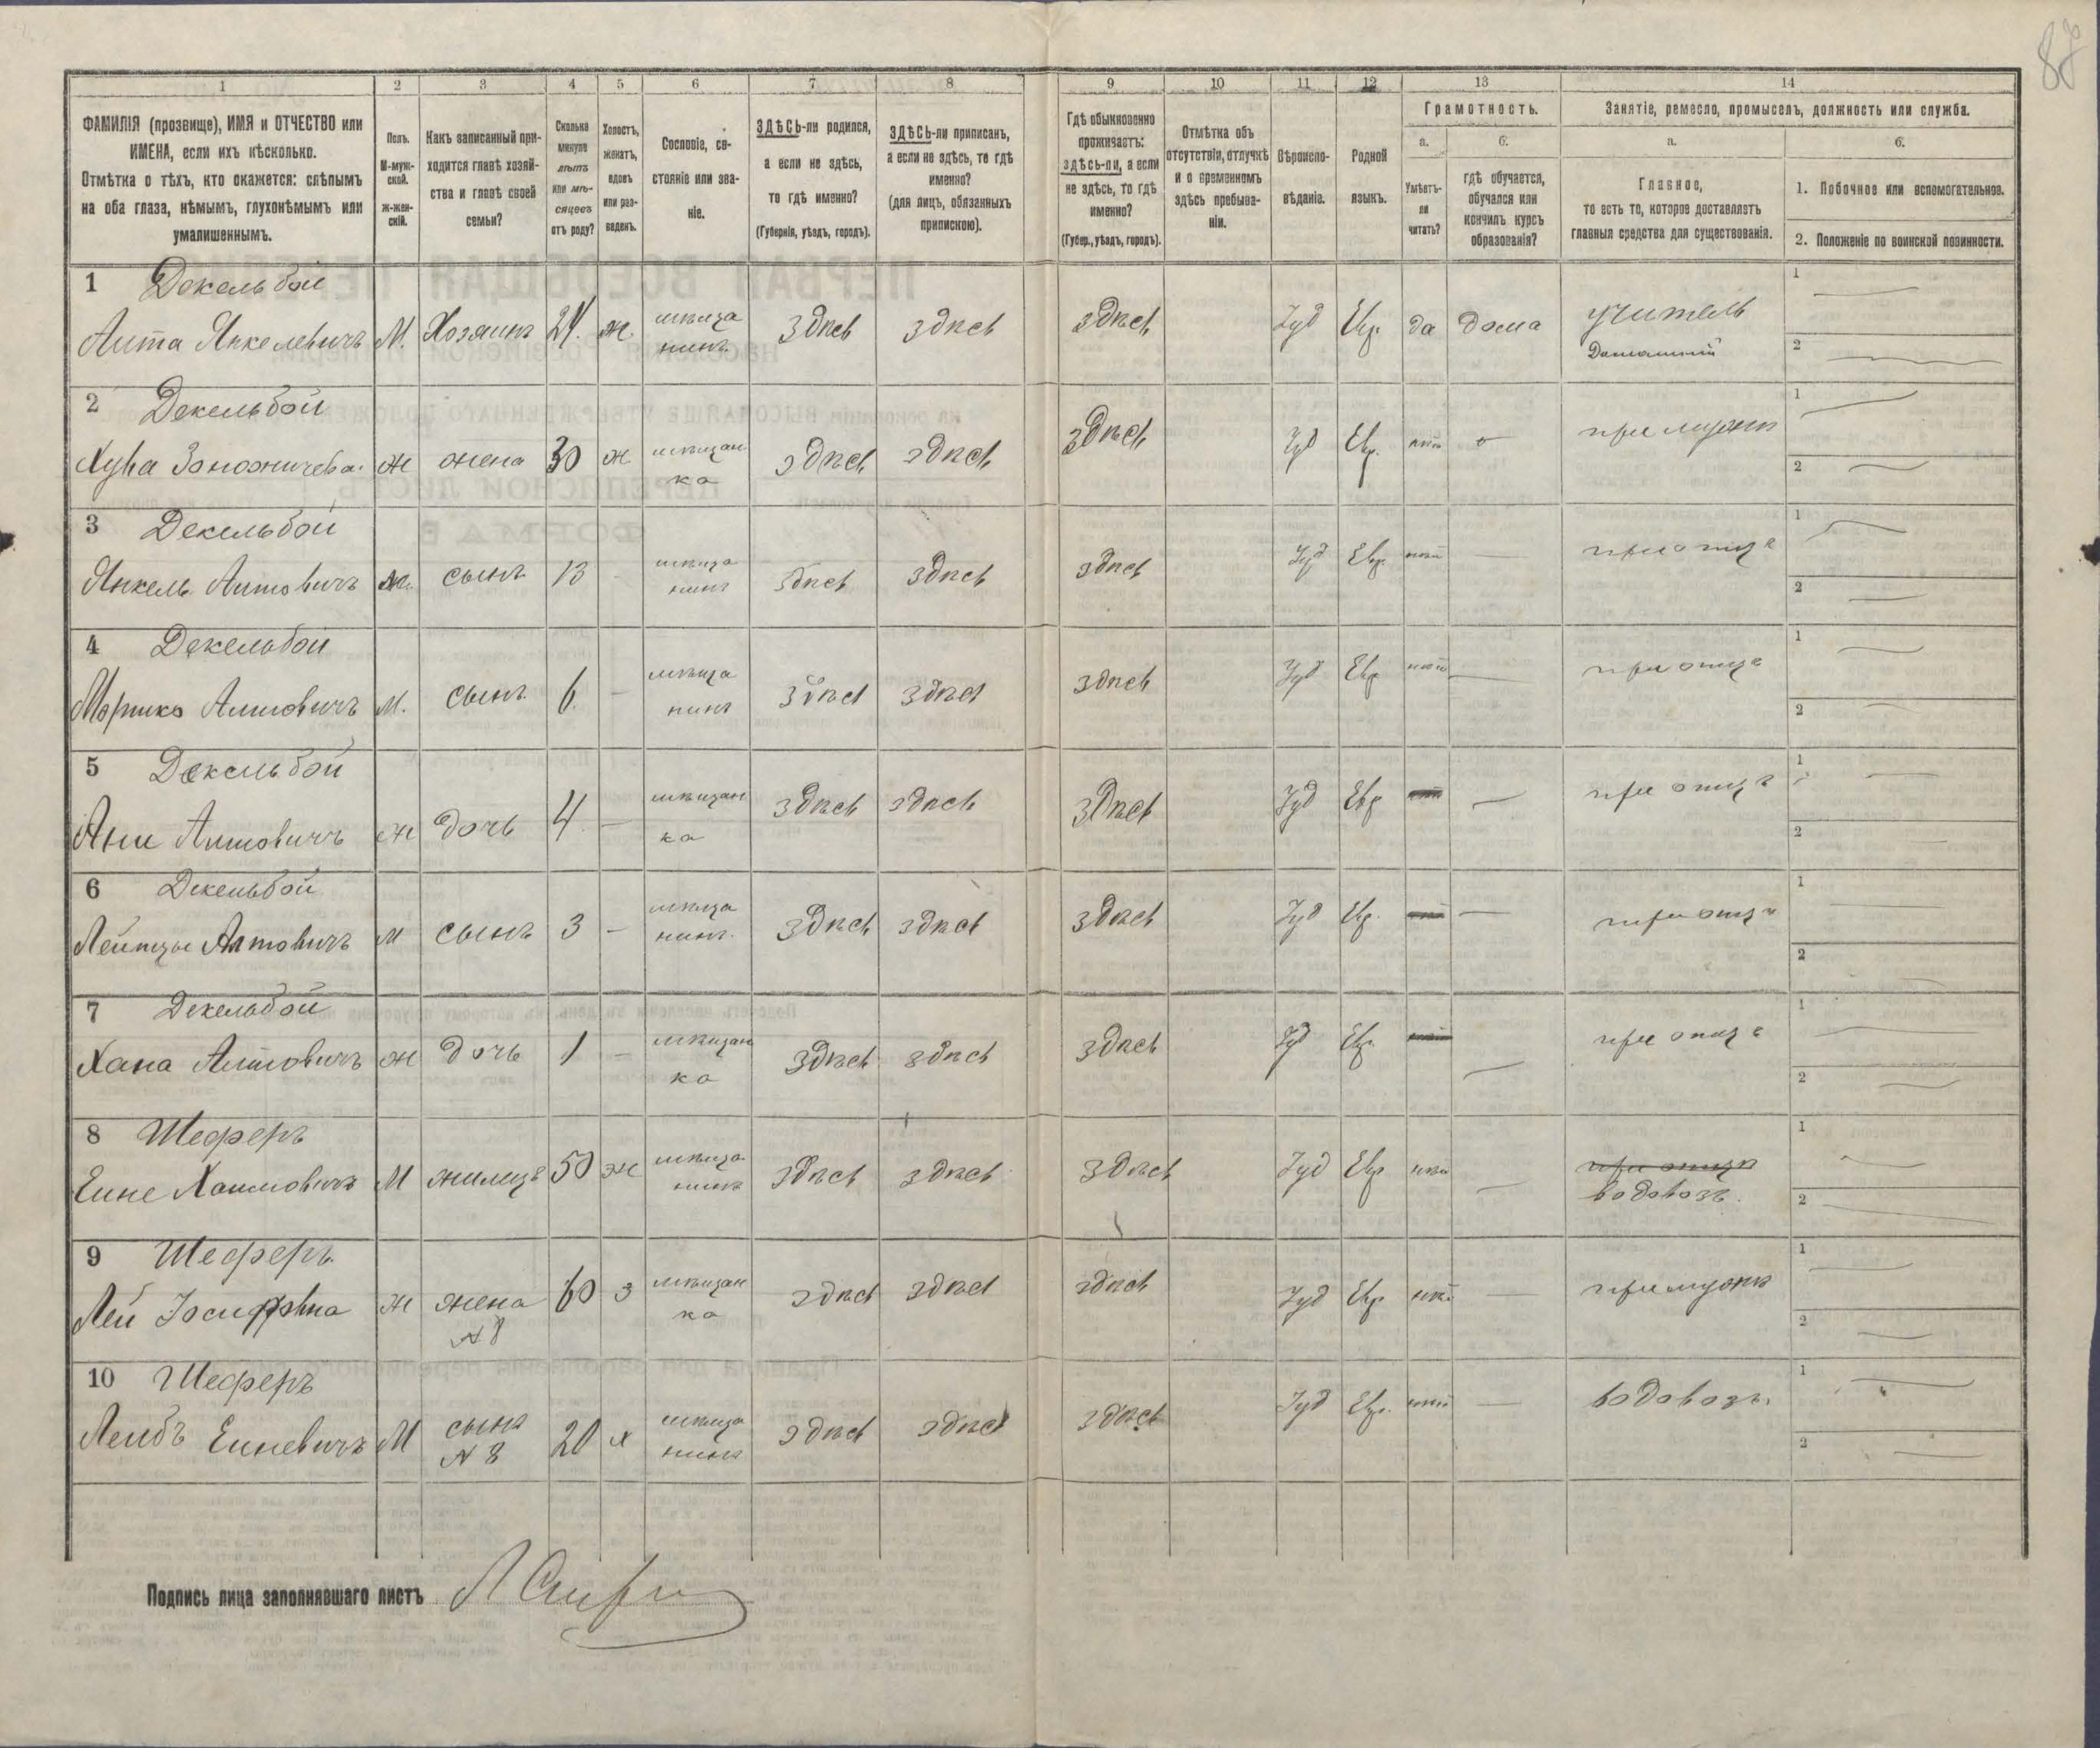 1
2
3
4
5
6
7
8
9
10
11
12
13
14
ФАМИЛІЯ (прозвище), ИМЯ и ОТЧЕСТВО или
ИМЕНА, если ихъ нѣсколько.
Отмѣтка о тѣхъ, кто окажется: слѣпымъ
на оба глаза, нѣмымъ, глухонѣмымъ или
умалишеннымъ.
Полъ.
М-муж-
ской.
ж-жен-
скій.
Какъ записанный при-
ходится главѣ хозяй-
ства и главѣ своей
семьи?
Сколько
минуло
лѣтъ
или мѣ-
сяцевъ
отъ роду?
Холостъ,
женатъ,
вдовъ
или раз-
веденъ.
Сословіе, со-
стояніе или зва-
ніе.
ЗДѢСЬ-ли родился,
а если не здѣсь,
то гдѣ именно?
(Губернія, уѣздъ, городъ).
ЗДѢСЬ-ли приписанъ,
а если не здѣсь, то гдѣ
именно?
(для лицъ, обязанныхъ
припискою).
Гдѣ обыкновенно
проживаетъ:
здѣсь-ли, а если
не здѣсь, то гдѣ
именно?
(Губер., уѣздъ, городъ).
Отмѣтка объ
отсутствіи, отлучкѣ
и о временномъ
здѣсь пребыва-
ніи.
Вѣроиспо-
вѣданіе.
Родной
языкъ.
Грамотность.
а.
Умѣетъ-
ли
читать?
б.
гдѣ обучается,
обучался или
кончилъ курсъ
образованія?
Занятіе, ремесло, промыселъ, должность или служба.
а.
Главное,
то есть то, которое доставляетъ
главныя средства для существованія.
б.
1. Побочное или вспомогательное.
2. Положеніе по воинской повинности.
1 Декельбой
Янкелевичъ М. Хозяинъ 24. ж. мѣща
нинъ. здѣсь здѣсь здѣсь Іуд Евр. да дома учитель
Домашній
1
2
2 Декельбой
Хува ж жена 30 ж мѣщан
ка здѣсь здѣсь здѣсь Іуд Евр. нѣт при мужѣ
1
2
3 Декельбой
Янкель м. сынъ 13 мѣща
нинъ здѣсь здѣсь здѣсь Іуд Евр. нѣт — при отцѣ
1
2
4 Декельбой
м. сынъ 6 — мѣща
нинъ здѣсь здѣсь здѣсь Іуд Евр нѣт — при отцѣ
1
2
5 Декельбой
ж дочь 4 — мѣщан
ка здѣсь здѣсь здѣсь Іуд Евр — при отцѣ
1
2
6 Декельбой
м сынъ 3 — мѣща
нинъ. здѣсь здѣсь здѣсь Іуд Евр. — при отцѣ
1
2
7 Декельбой
Хана ж дочь 1 — мѣщан
ка здѣсь здѣсь здѣсь Іуд Евр. — при отцѣ
1
2
8 Шеферъ
Хаимовичъ М жилецъ 50 ж мѣща
нинъ здѣсь здѣсь здѣсь Іуд Евр нѣт — при отцѣ
водовозъ.
1
2
9 Шеферъ
Лей Іосифовна ж жена
N 8 60 з мѣщан
ка здѣсь здѣсь здѣсь Іуд Евр нѣт — при мужѣ
1
2
10 Шеферъ
Лейбъ М сынъ
N 8 20 х мѣща
нинъ здѣсь здѣсь здѣсь Іуд Евр. нѣт — водовозъ.
1
2
Подпись лица заполнявшаго листъ